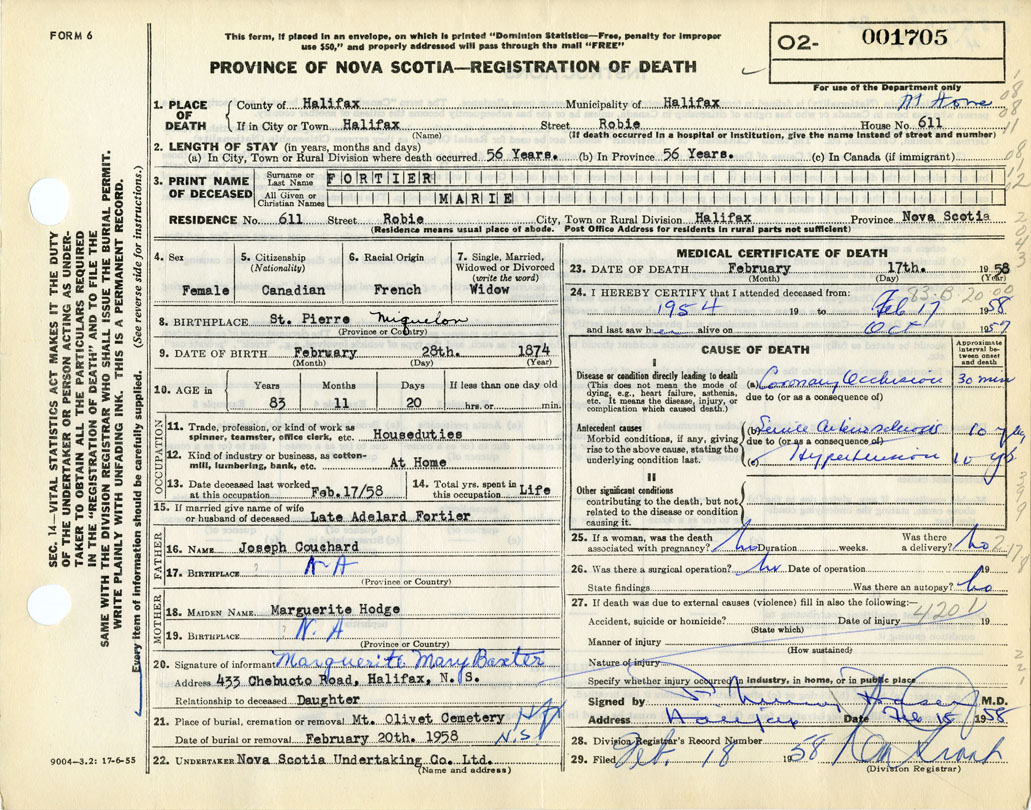 FORM 6
This form, if placed in an envelope, on which is printed "Dominion Statistics—Free, penalty for improper
use $50," and properly addressed will pass through the mail "FREE"
PROVINCE OF NOVA SCOTIA—REGISTRATION OF DEATH
02- 001705
For use of the Department only
At Home
SEC. 14—VITAL STATISTICS ACT MAKES IT THE DUTY
OF THE UNDERTAKER OR PERSON ACTING AS UNDER-
TAKER TO OBTAIN ALL THE PARTICULARS REQUIRED
IN THE "REGISTRATION OF DEATH" AND TO FILE THE
SAME WITH THE DIVISION REGISTRAR WHO SHALL ISSUE THE BURIAL PERMIT.
WRITE PLAINLY WITH UNFADING INK. THIS IS A PERMANENT RECORD.
Every item of information should be carefully supplied. (See reverse side for instructions.)
1. PLACE OF DEATH
County of Halifax Municipality of Halifax
If in City or Town Halifax Street Robie House No. 611
(Name) (If death occurred in a hospital or institution, give the name instead of street and number)
2. LENGTH OF STAY (in years, months and days)
(a) In City, Town or Rural Division where death occurred 56 Years. (b) In Province 56 Years. (c) In Canada (if immigrant)
3. PRINT NAME OF DECEASED
Surname or Last Name FORTIER
All Given or Christian Names MARIE
RESIDENCE No. 611 Street Robie City, Town or Rural Division Halifax Province Nova Scotia
(Residence means usual place of abode. Post Office Address for residents in rural parts not sufficient)
4. Sex
Female
5. Citizenship
(Nationality)
Canadian
6. Racial Origin
French
7. Single, Married,
Widowed or Divorced
(write the word)
Widow
8. BIRTHPLACE St. Pierre Miquelon
(Province or Country)
9. DATE OF BIRTH February 28th. 1874
(Month) (Day) (Year)
10. AGE in Years Months Days If less than one day old
83 11 20 hrs. or min.
OCCUPATION
11. Trade, profession, or kind of work as
spinner, teamster, office clerk, etc. Houseduties
12. Kind of industry or business, as cotton-
mill, lumbering, bank, etc. At Home
13. Date deceased last worked
at this occupation Feb.17/58
14. Total yrs. spent in
this occupation Life
15. If married give name of wife
or husband of deceased Late Adelard Fortier
FATHER
16. NAME Joseph Couchard
17. BIRTHPLACE ? N A
(Province or Country)
MOTHER
18. MAIDEN NAME Marguerite Hodge
19. BIRTHPLACE ? N. A
(Province or Country)
20. Signature of informant Marguerite Mary Baxter
Address 433 Chebucto Road, Halifax, N. S.
Relationship to deceased Daughter
21. Place of burial, cremation or removal Mt. Olivet Cemetery Hfx
Date of burial or removal February 20th. 1958 N.S.
22. UNDERTAKER Nova Scotia Undertaking Co. Ltd.
(Name and address)
9004—3.2: 17-6-55
MEDICAL CERTIFICATE OF DEATH
23. DATE OF DEATH February 17th. 1958
(Month) (Day) (Year)
83-B 20.00
24. I HEREBY CERTIFY that I attended deceased from:
1954 19 to Feb 17 1958
and last saw her alive on Oct 1957
CAUSE OF DEATH
Approximate
interval be-
tween onset
and death
I
Disease or condition directly leading to death
(This does not mean the mode of
dying, e.g., heart failure, asthenia,
etc. It means the disease, injury, or
complication which caused death.)
(a) Coronary Occlusion 30 min
due to (or as a consequence of)
Antecedent causes
Morbid conditions, if any, giving
rise to the above cause, stating the
underlying condition last.
(b) Senile Arteriosclerosis 10 yrs
due to (or as a consequence of)
(c) Hypertension 10 yrs
II
Other significant conditions
contributing to the death, but not
related to the disease or condition
causing it.
25. If a woman, was the death
associated with pregnancy? No Duration weeks. Was there
a delivery? No
26. Was there a surgical operation? No Date of operation 19
State findings Was there an autopsy? No
27. If death was due to external causes (violence) fill in also the following:
4201
Accident, suicide or homicide? Date of injury 19
(State which)
Manner of injury
(How sustained)
Nature of injury
Specify whether injury occurred in industry, in home, or in public place
Signed by M.D.
Address Halifax Date Feb 18 1958
28. Division Registrar's Record Number
29. Filed Feb. 18 1958
(Division Registrar)